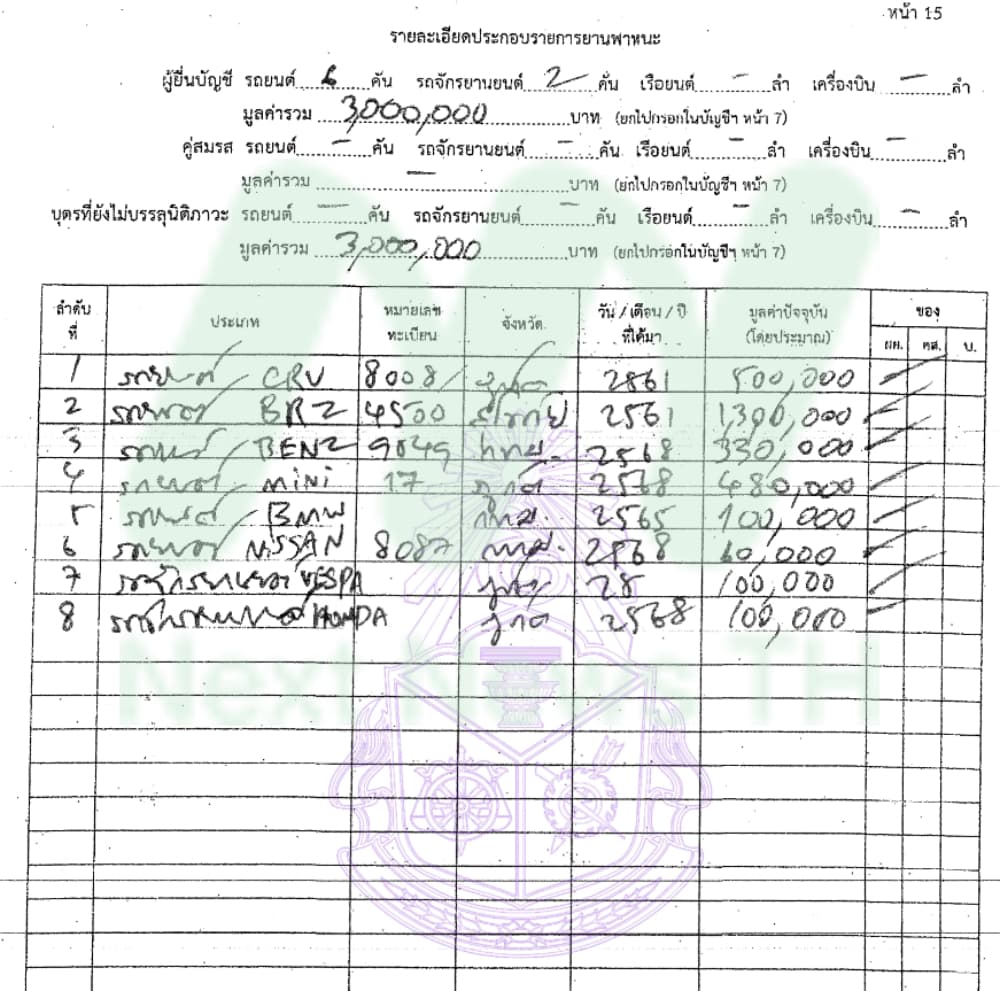 หน้า 15
รายละเอียดประกอบรายการยานพาหนะ
ผู้ยื่นบัญชี รถยนต์ 6 คัน รถจักรยานยนต์ 2 คัน เรือยนต์ - ลำ เครื่องบิน - ลำ
มูลค่ารวม 3,000,000 บาท (ยกไปกรอกในบัญชีฯ หน้า 7)
คู่สมรส รถยนต์ - คัน รถจักรยานยนต์ - คัน เรือยนต์ - ลำ เครื่องบิน - ลำ
มูลค่ารวม - บาท (ยกไปกรอกในบัญชีฯ หน้า 7)
บุตรที่ยังไม่บรรลุนิติภาวะ รถยนต์ - คัน รถจักรยานยนต์ - คัน เรือยนต์ - ลำ เครื่องบิน - ลำ
มูลค่ารวม 3,000,000 บาท (ยกไปกรอกในบัญชีฯ หน้า 7)
ลำดับที่ ประเภท หมายเลขทะเบียน จังหวัด วัน / เดือน / ปี ที่ได้มา มูลค่าปัจจุบัน (โดยประมาณ) ของ ผย. คส. บ.
1 รถยนต์ CRV 8008 ภูเก็ต 2561 500,000
2 รถยนต์ BRZ 4500 2561 1,300,000
3 รถยนต์ BENZ 9049 กทม. 2568 330,000
4 รถยนต์ MINI 17 ภูเก็ต 2568 480,000
5 รถยนต์ BMW กทม. 2565 100,000
6 รถยนต์ NISSAN 8087 กทม. 2568 60,000
7 รถจักรยานยนต์ VESPA ภูเก็ต 25 100,000
8 รถจักรยานยนต์ HONDA ภูเก็ต 2568 100,000
Next News TH